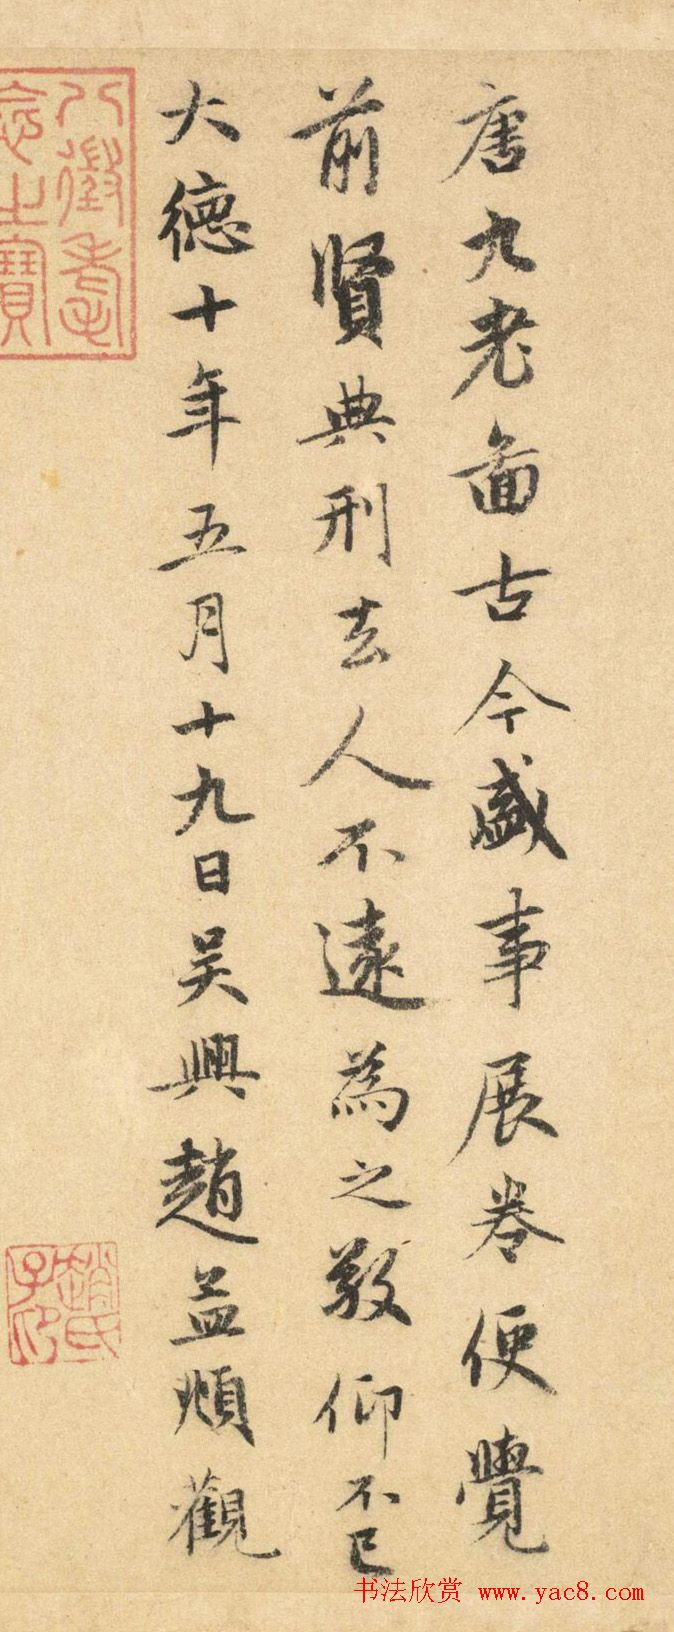 唐九老圖古今盛事展卷便覺
前賢典刑去人不遠為之敬仰不已
大德十年五月十九日吴興趙孟頫觀
八徵耄念之寶
趙氏子昂
书法欣赏 www.yac8.com